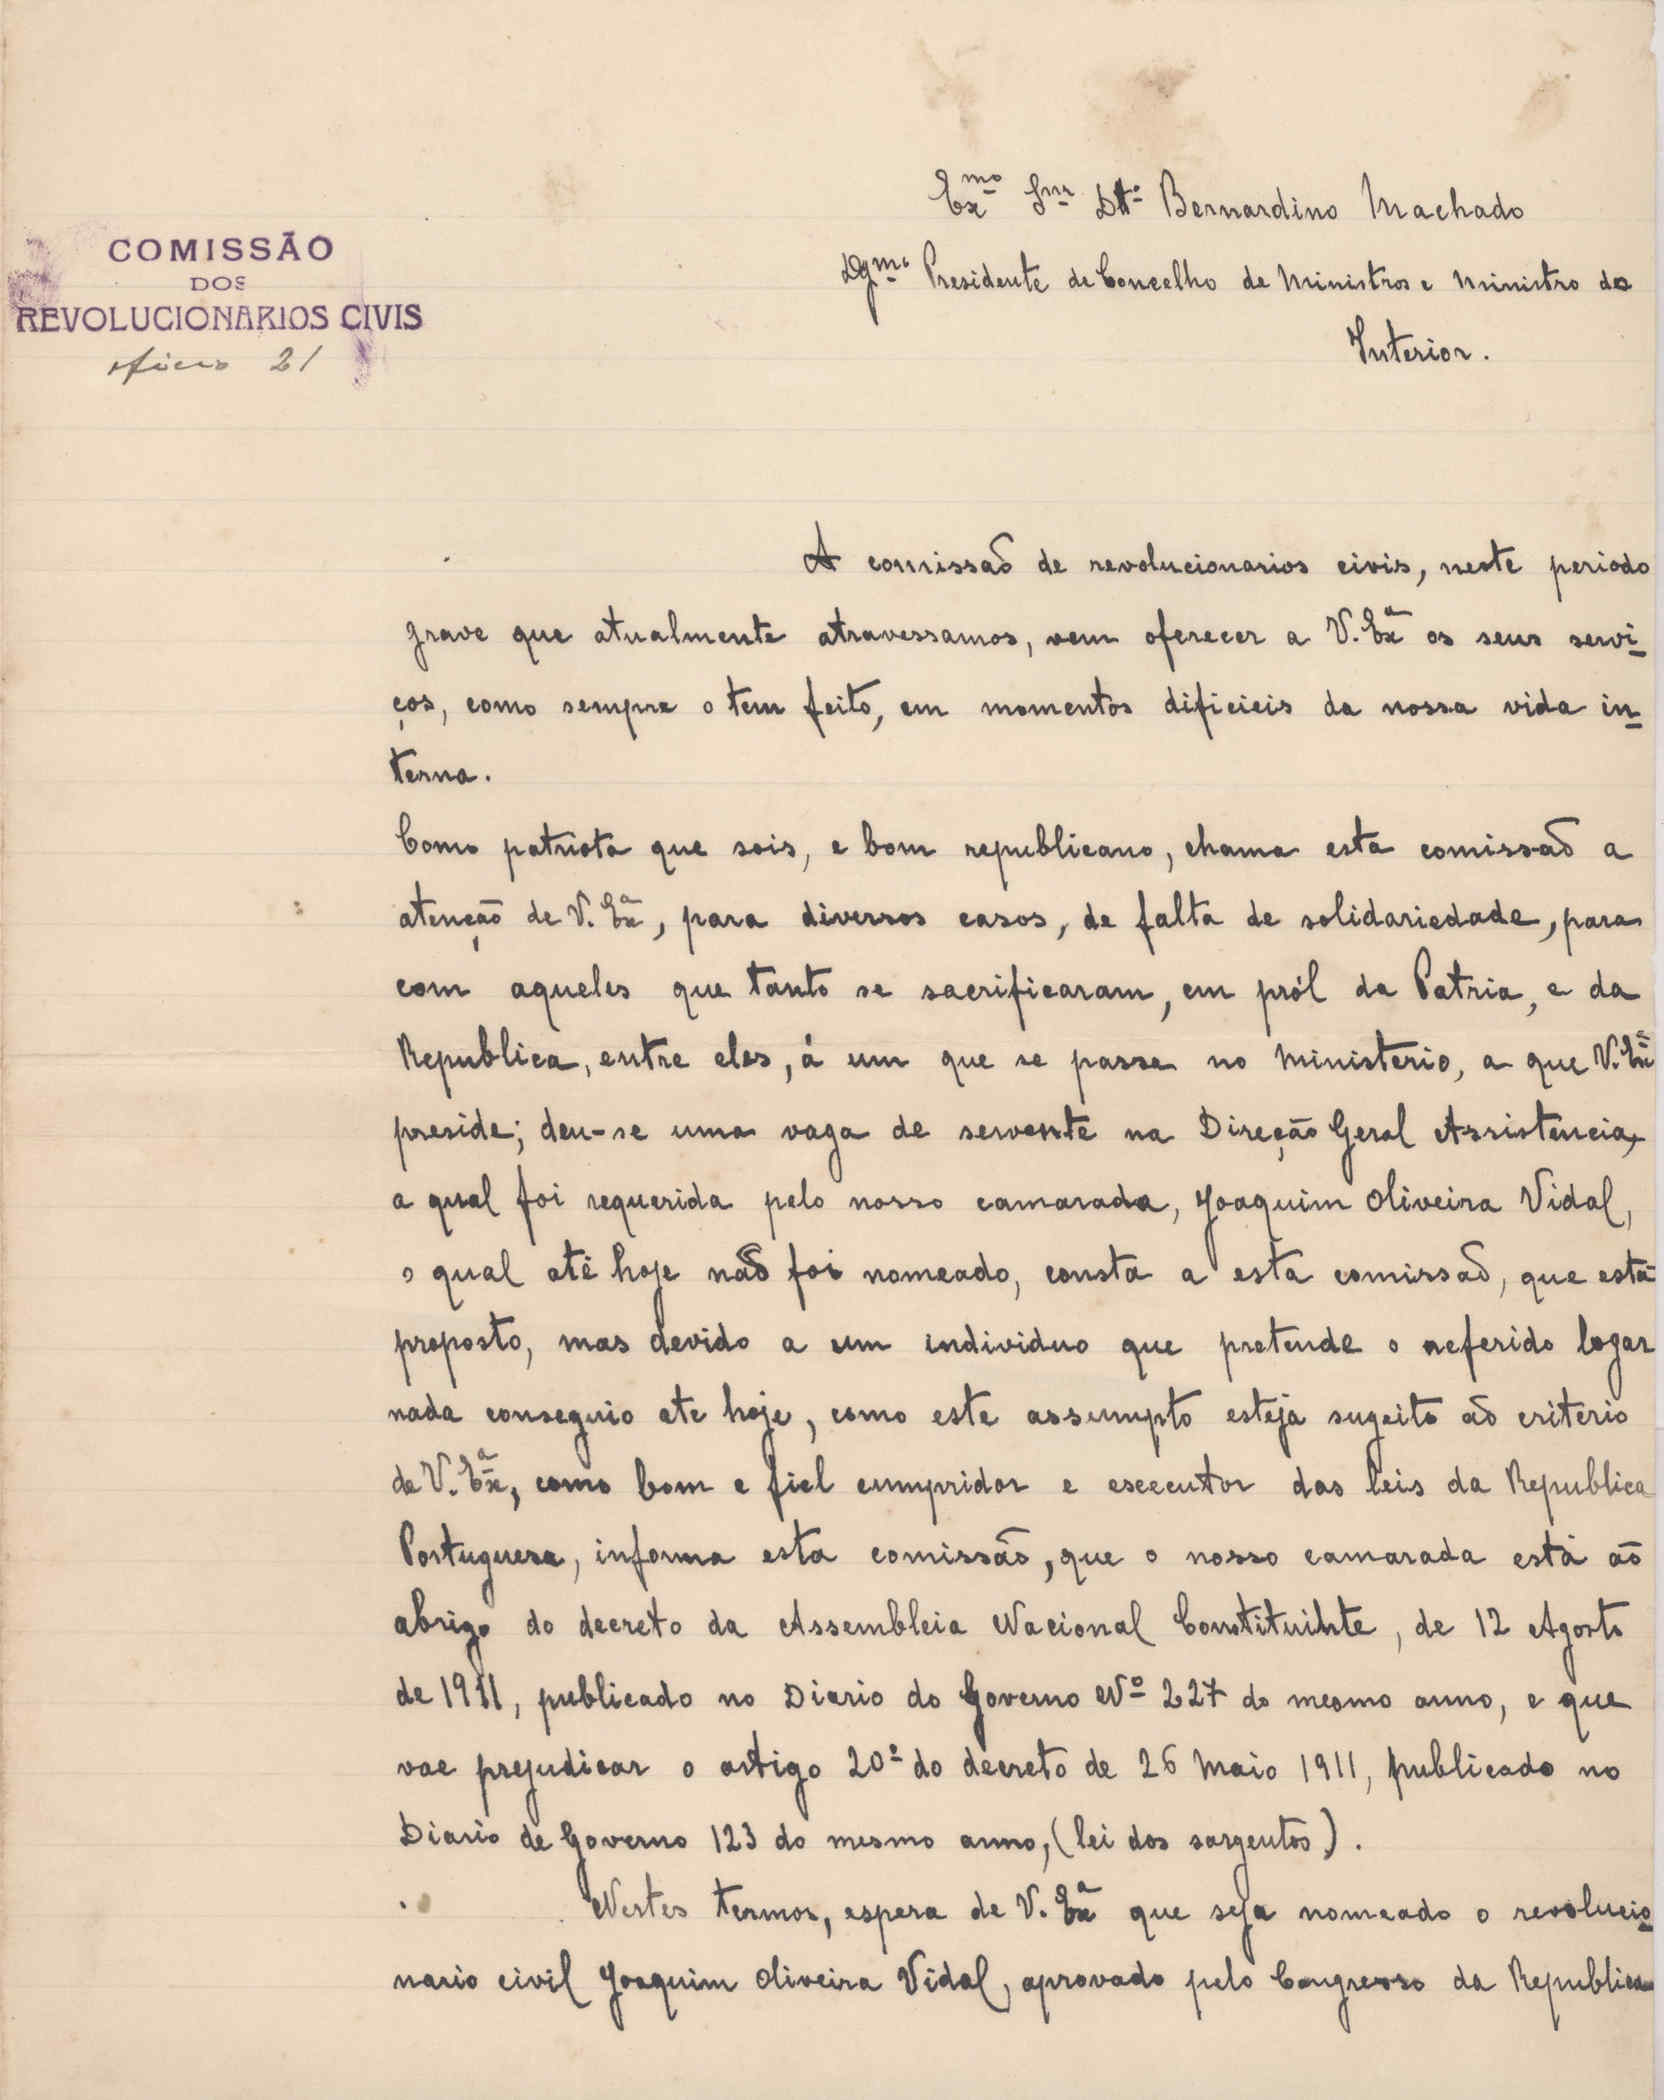 Exmo Snr Dtº Bernardino Machado
Dgmº Presidente de Concelho de Ministros e Ministro do
Interior.
COMISSÃO
DOS
REVOLUCIONARIOS CIVIS
oficio 21
A comissaõ de revolucionarios civis, neste periodo
grave que atualmente atravessamos, vem oferecer a V. Exª os seus servi-
ços, como sempre o tem feito, em momentos dificieis da nossa vida in-
terna.
Como patriota que sois, e bom republicano, chama esta comissaõ a
atenção de V. Exª, para diversos casos, de falta de solidariedade, para
com aqueles que tanto se sacrificaram, em pról da Patria, e da
Republica, entre eles, á um que se passa no Ministerio, a que V. Exª
preside; deu-se uma vaga de servente na Direção Geral Assistencia,
a qual foi requerida pelo nosso camarada, Joaquim Oliveira Vidal,
o qual até hoje naõ foi nomeado, consta a esta comissaõ, que está
proposto, mas devido a um individuo que pretende o referido logar
nada conseguio ate hoje, como este assumpto esteja sugeito aõ criterio
de V. Exª, como bom e fiel cumpridor e esecutor das leis da Republica
Portuguesa, informa esta comissão, que o nosso camarada está aõ
abrigo do decreto da Assembleia Nacional Constituihte, de 12 Agosto
de 1911, publicado no Diario do Governo Nº 227 do mesmo anno, e que
vae prejudicar o artigo 20º do decreto de 26 Maio 1911, publicado no
Diario de Governo 123 do mesmo anno, (lei dos sargentos).
Nestes termos, espera de V. Exª que seja nomeado o revolucio-
nario civil Joaquim Oliveira Vidal, aprovado pelo Congresso da Republica